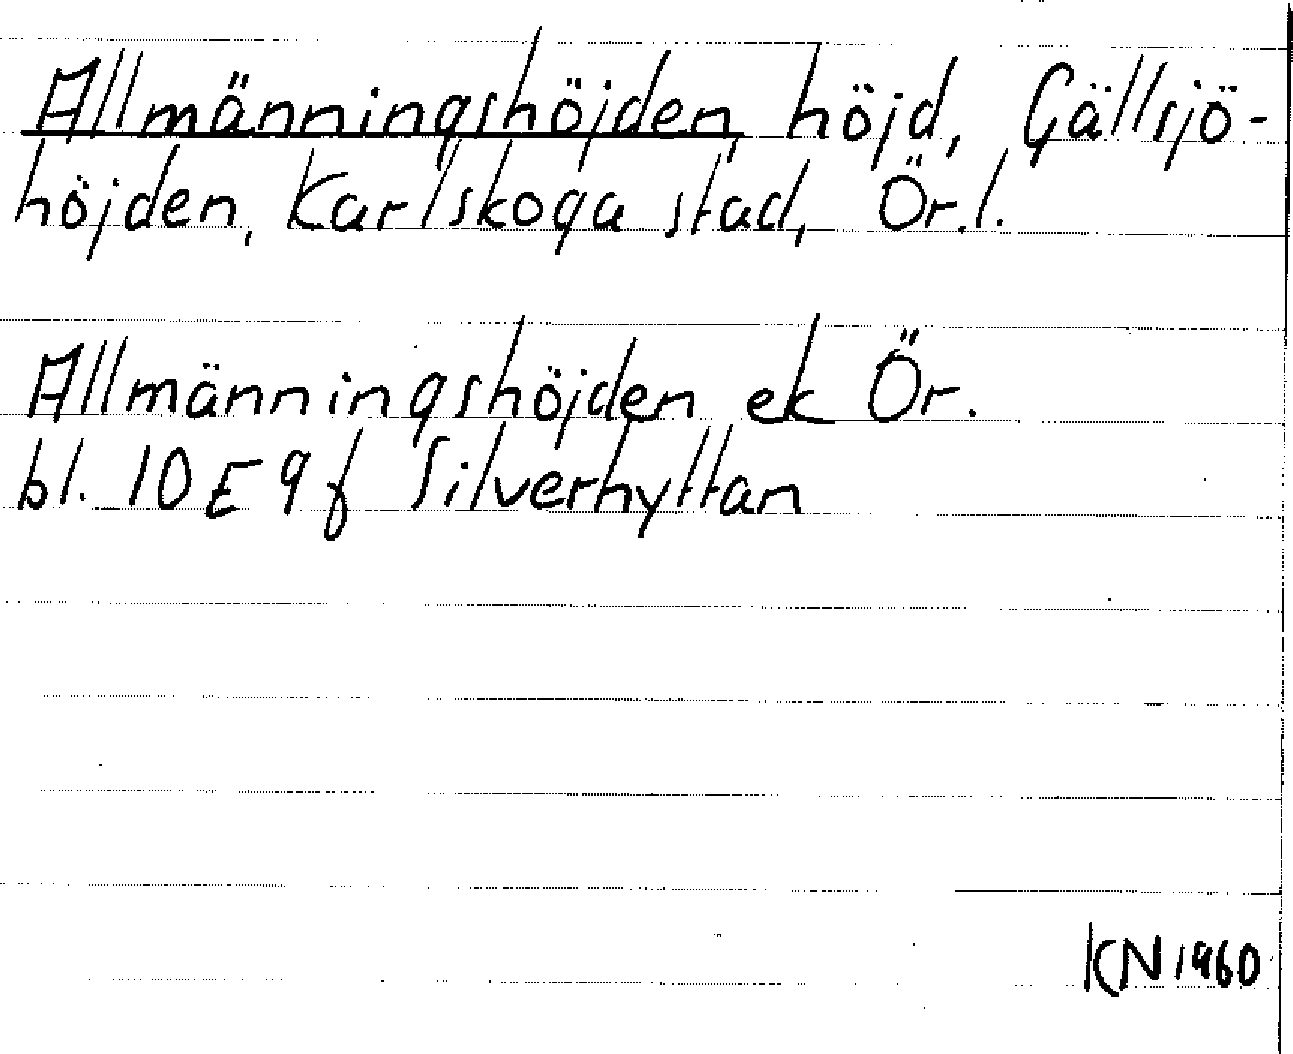 Allmänningshöjden, höjd, Gällsjö-
höjden, Karlskoga stad, Ör.l.
Allmänningshöjden ek Ör.
bl. 10 E 9 f Silverhyttan
KN 1960